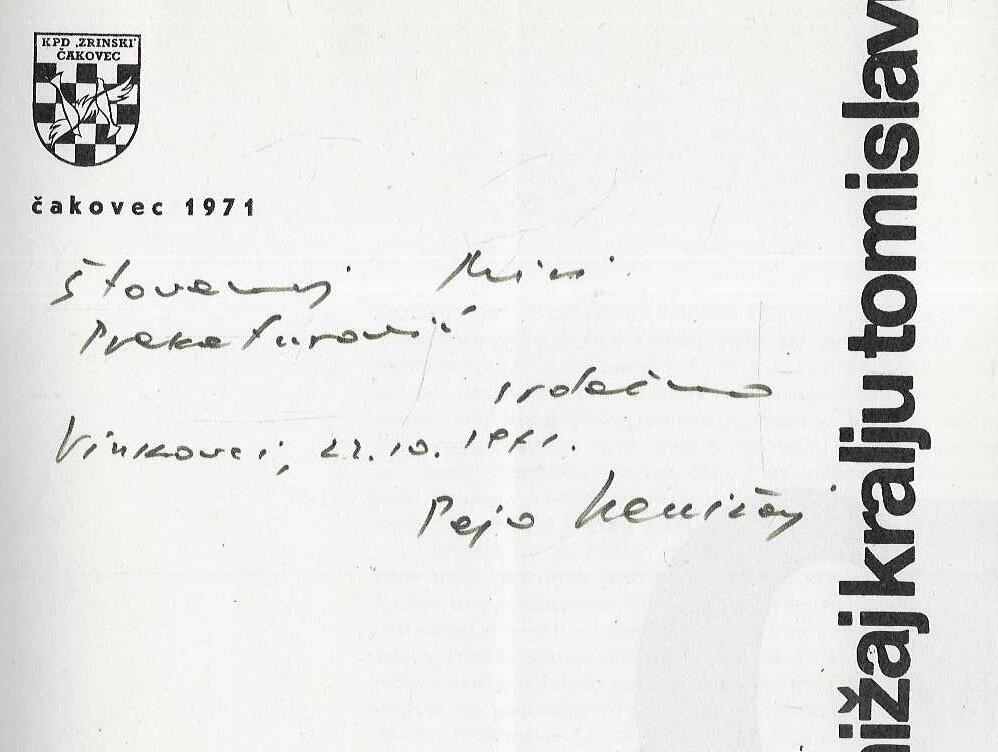 KPD „ZRINSKI“
ČAKOVEC
čakovec 1971
Štovanoj Mini
Prekaturović
srdačno
Vinkovci, 22.10.1971.
Pajo
ižaj kralju tomislavu